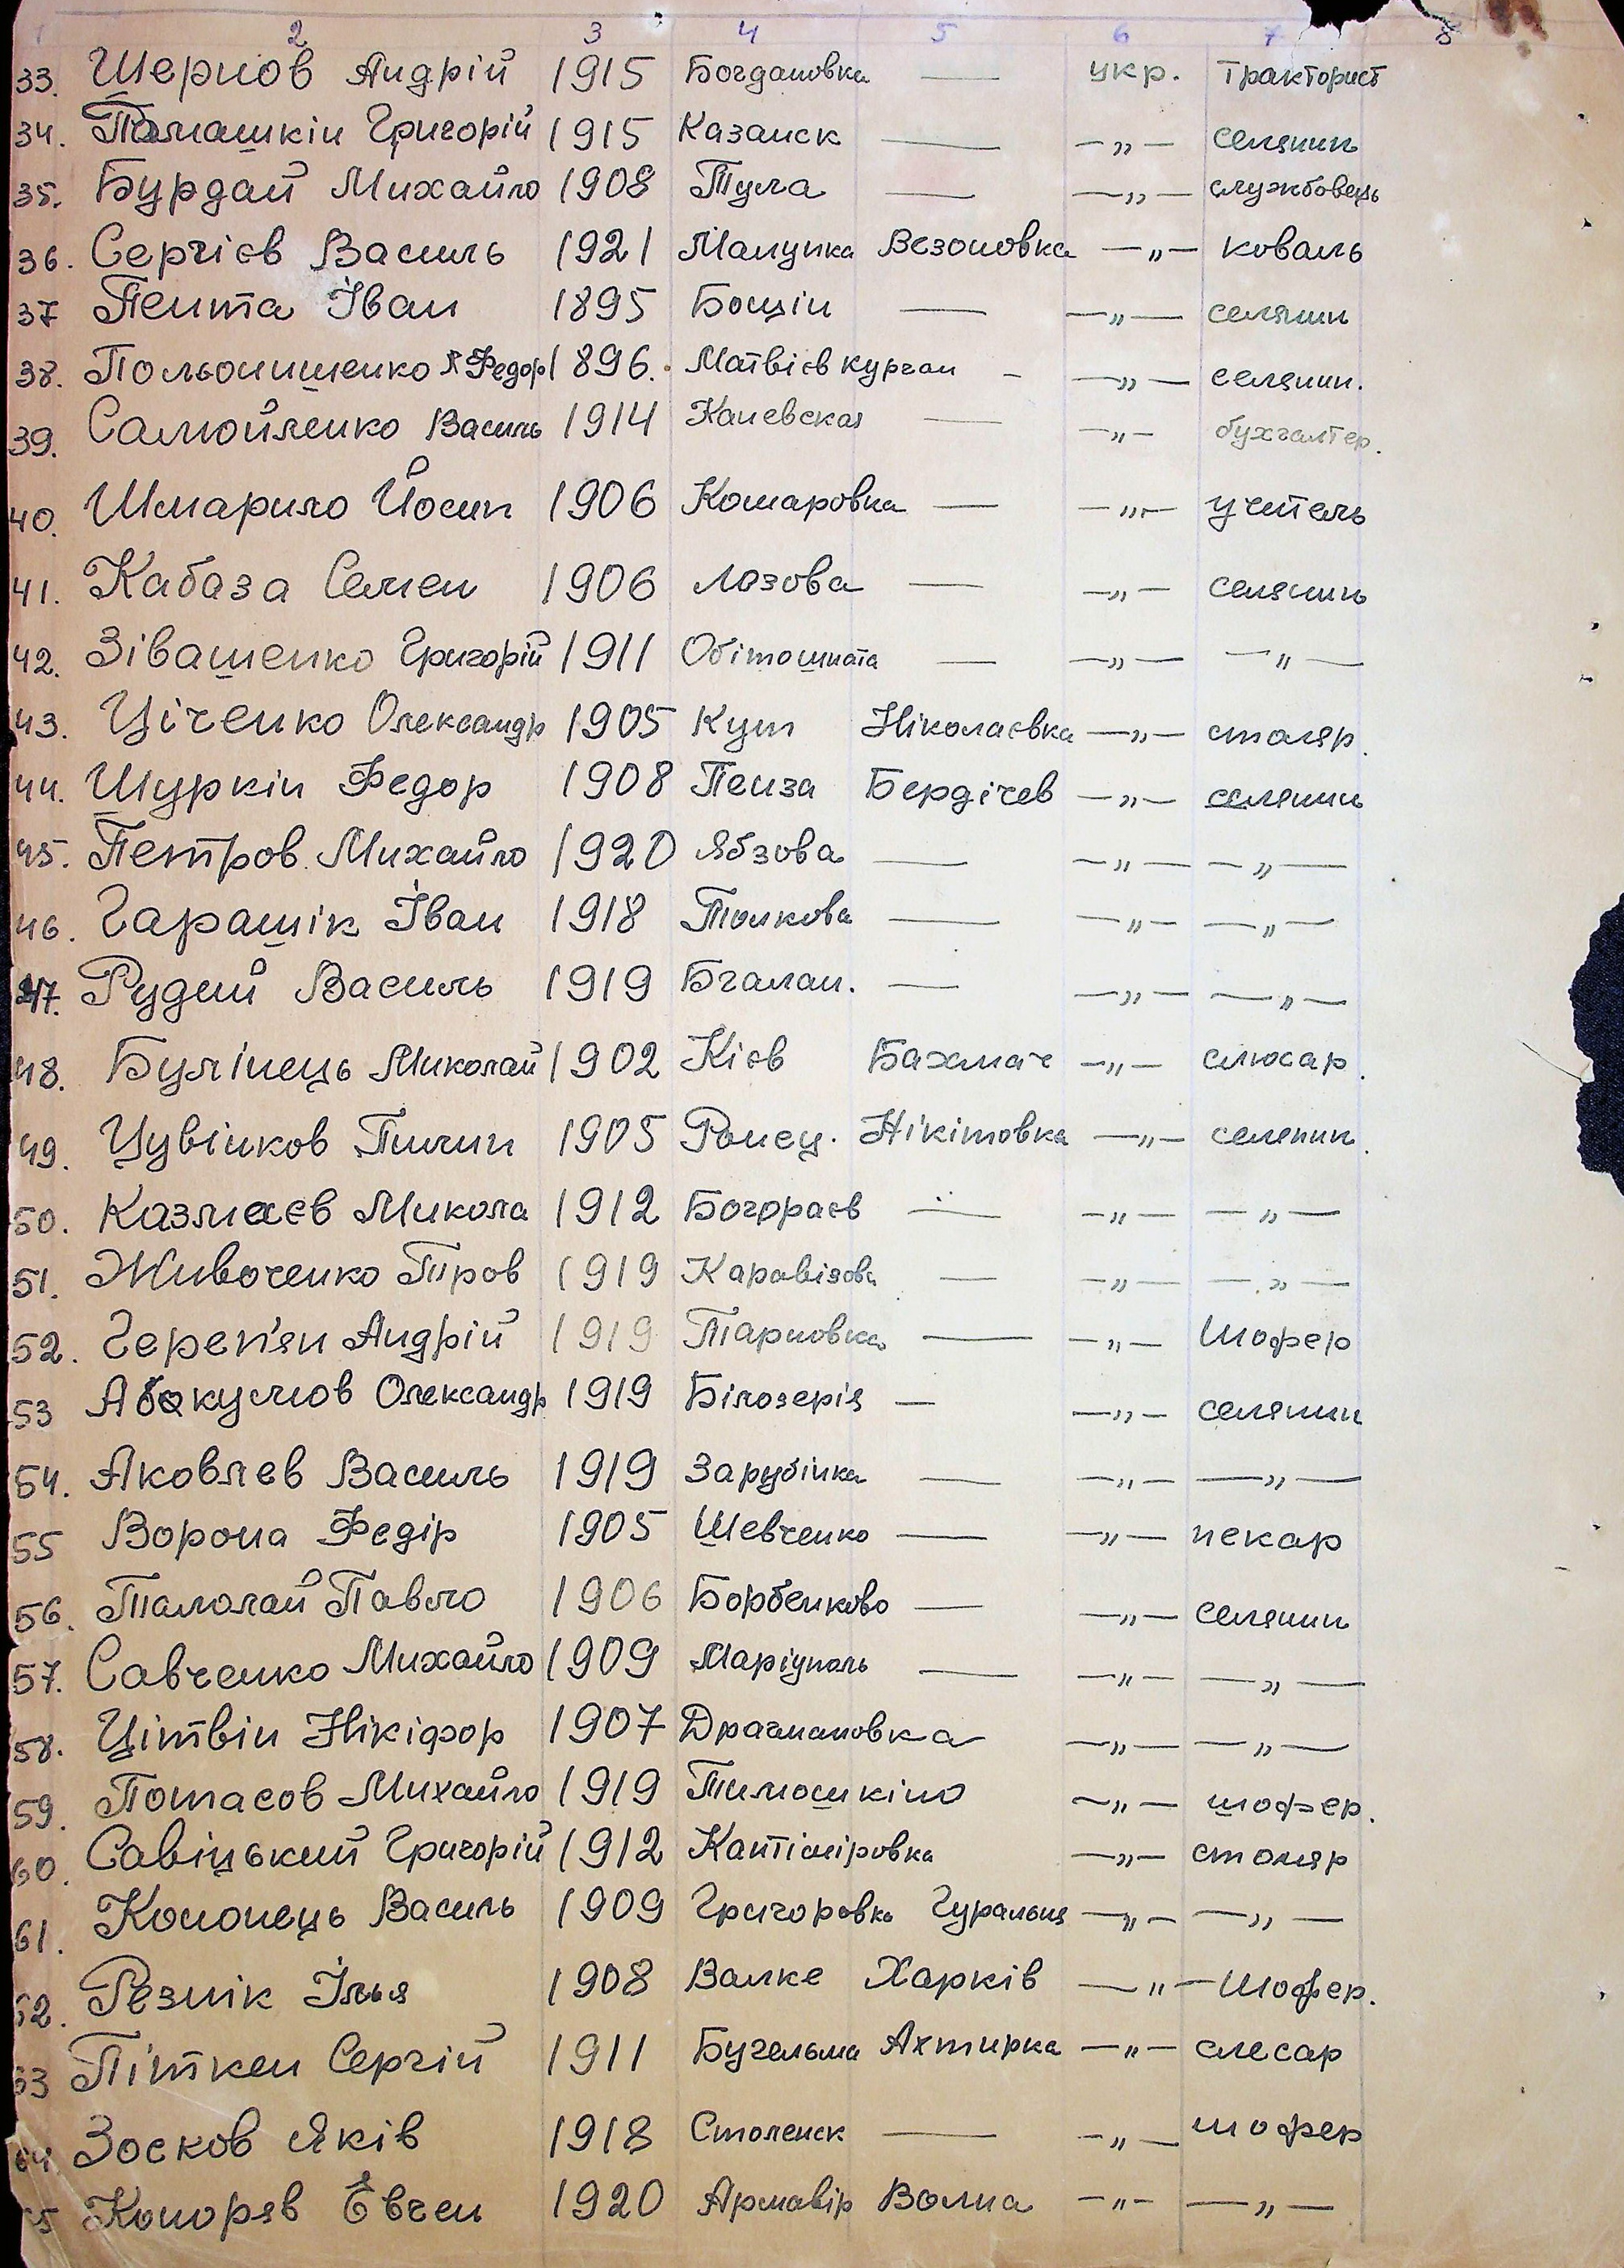 1 2 3 4 5 6 7 8
33. Шернов Андрій 1915 Богдановка — укр. тракторист
34. Томашкін Григорій 1915 Казанск — —„— селянин
35. Бурдай Михайло 1908 Тула — —„— службовець
36. Сергієв Василь 1921 Манунка Везоновка —„— коваль
37 Пента Іван 1895 Боцін — —„— селянин
38. Польонишенко Федор 1896. Матвієв курган — —„— селянин.
39. Самойленко Василь 1914 Каневская — —„— бухгалтер.
40. Шмарило Йосип 1906 Комаровка — —„— учитель
41. Кабаза Семен 1906 Лозова — —„— селянин
42. Зівашенко Григорій 1911 Обітошната — —„— —„—
43. Ціченко Олександр 1905 Кут Ніколаєвка —„— столяр.
44. Шуркін Федор 1908 Пенза Бердічев —„— селянин
45. Петров Михайло 1920 Ябзова — —„— —„—
46. Гарашік Іван 1918 Толкова — —„— —„—
47. Рудий Василь 1919 Бгалан. — —„— —„—
48. Булінець Миколай 1902 Кієв Бахмач —„— слюсар.
49. Цувінков Пилип 1905 Ронец. Нікітовка —„— селянин.
50. Казмаєв Микола 1912 Богораєв — —„— —„—
51. Живоченко Піров 1919 Каравізова — —„— —„—
52. Череп'ян Андрій 1919 Тарновка — —„— Шофер
53 Абокумов Олександр 1919 Білозерія — —„— селянин
54. Яковлєв Василь 1919 Зарубінка — —„— —„—
55 Ворона Федір 1905 Шевченко — —„— пекар
56. Талолай Павло 1906 Борбенково — —„— селянин
57. Савченко Михайло 1909 Маріуполь — —„— —„—
58. Цітвін Нікіфор 1907 Драгмановка —„— —„—
59. Потасов Михайло 1919 Тимошкіно —„— шофер.
60. Савіцький Григорій 1912 Кантіміровка —„— столяр
61. Кононець Василь 1909 Григоровка Гуральня —„— —„—
62. Резнік Ілья 1908 Валке Харків —„— Шофер.
63 Піткен Сергій 1911 Бугельма Ахтирка —„— слесар
64. Зосков Яків 1918 Смоленск — —„— шофер
65 Конорєв Євген 1920 Армавір Волна —„— —„—